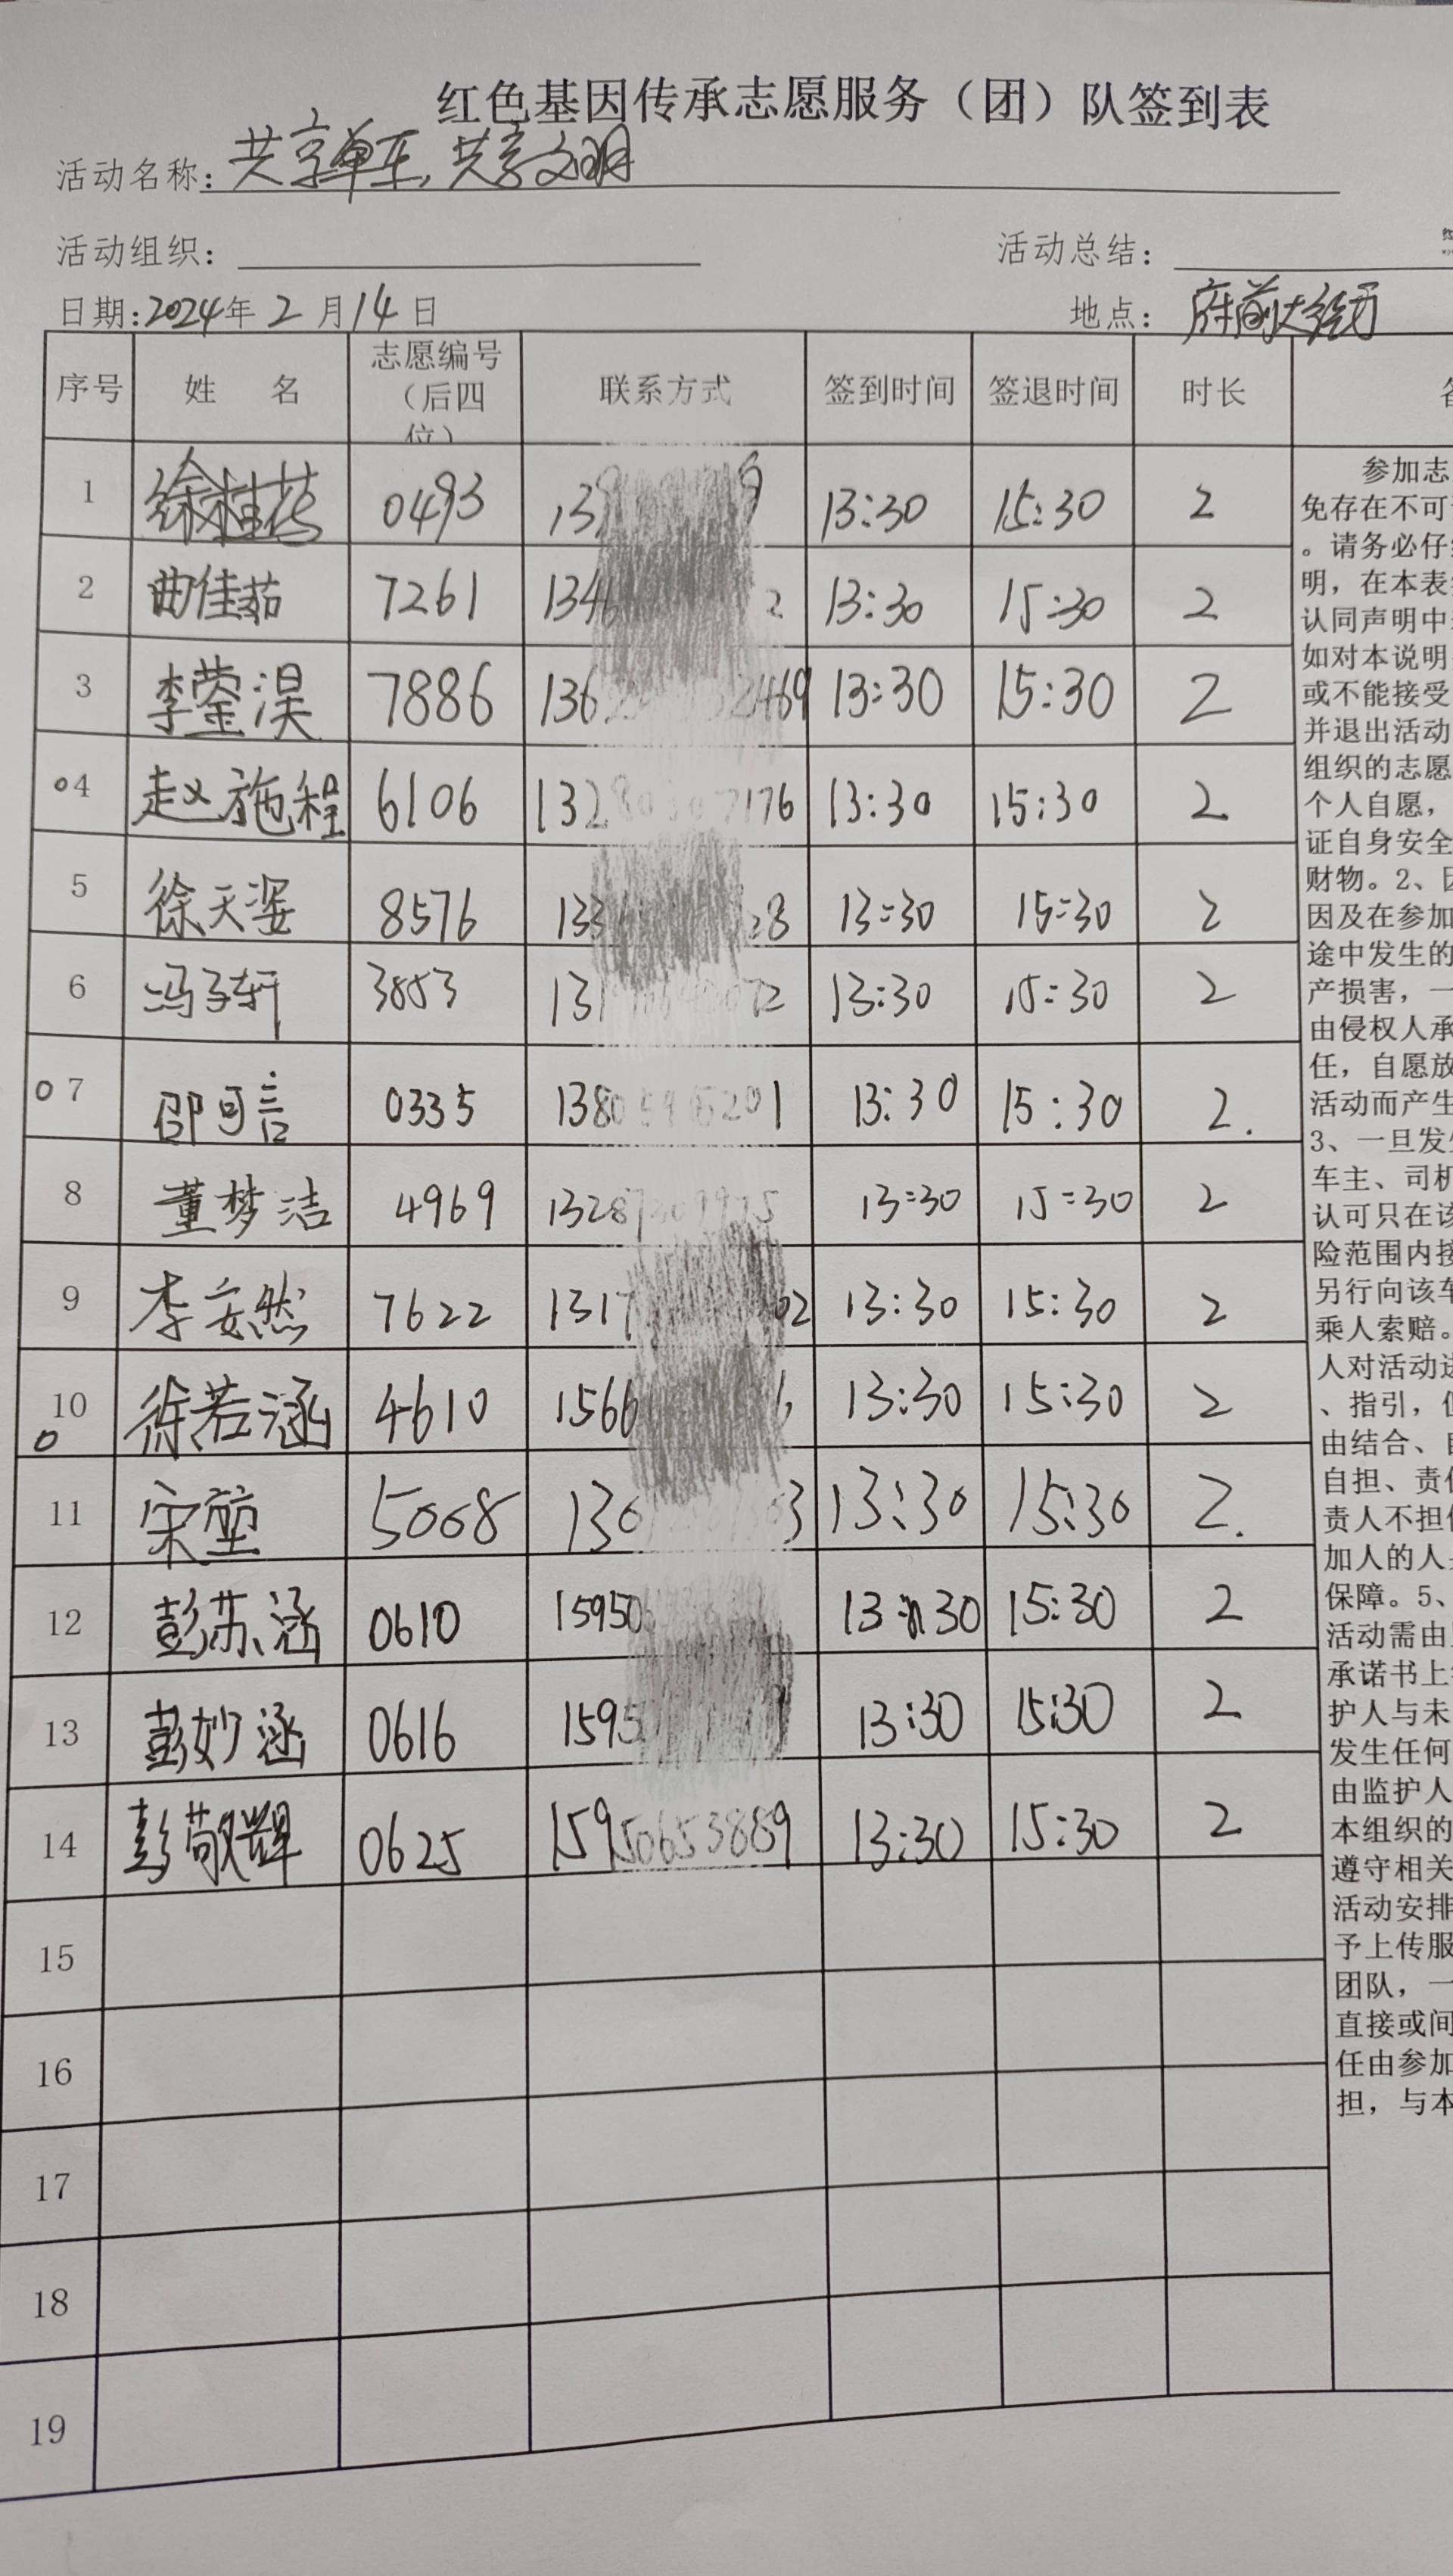 红色基因传承志愿服务（团）队签到表
活动名称：共享单车，共享文明
活动组织：
活动总结：
日期：2024年 2 月 14 日
地点：府前大街
序号 姓 名 志愿编号（后四位） 联系方式 签到时间 签退时间 时长
1 徐桂芬 0493 13 9 13:30 15:30 2
2 曲佳茹 7261 134 2 13:30 15:30 2
3 李蓥淏 7886 136 469 13:30 15:30 2
4 赵施程 6106 132 7176 13:30 15:30 2
5 徐天姿 8576 133 28 13:30 15:30 2
6 冯子轩 3853 131 72 13:30 15:30 2
7 邵可言 0335 138 1 13:30 15:30 2.
8 董梦洁 4969 1328 5 13:30 15:30 2
9 李安然 7622 1317 02 13:30 15:30 2
10 徐若涵 4610 1566 6 13:30 15:30 2
11 宋堃 5008 130 3 13:30 15:30 2.
12 彭苏涵 0610 15950 13:30 15:30 2
13 彭妙涵 0616 1595 13:30 15:30 2
14 彭敬辉 0625 15950653889 13:30 15:30 2
15
16
17
18
19
参加志
免存在不可
。请务必仔
明，在本表
认同声明中
如对本说明
或不能接受
并退出活动
组织的志愿
个人自愿，
证自身安全
财物。2、因
因及在参加
途中发生的
产损害，一
由侵权人承
任，自愿放
活动而产生
3、一旦发生
车主、司机
认可只在该
险范围内接
另行向该车
乘人索赔。
人对活动进
、指引，但
由结合、自
自担、责任
责人不担任
加人的人身
保障。5、
活动需由监
承诺书上
护人与未
发生任何
由监护人
本组织的
遵守相关
活动安排
予上传服
团队，一
直接或间
任由参加
担，与本